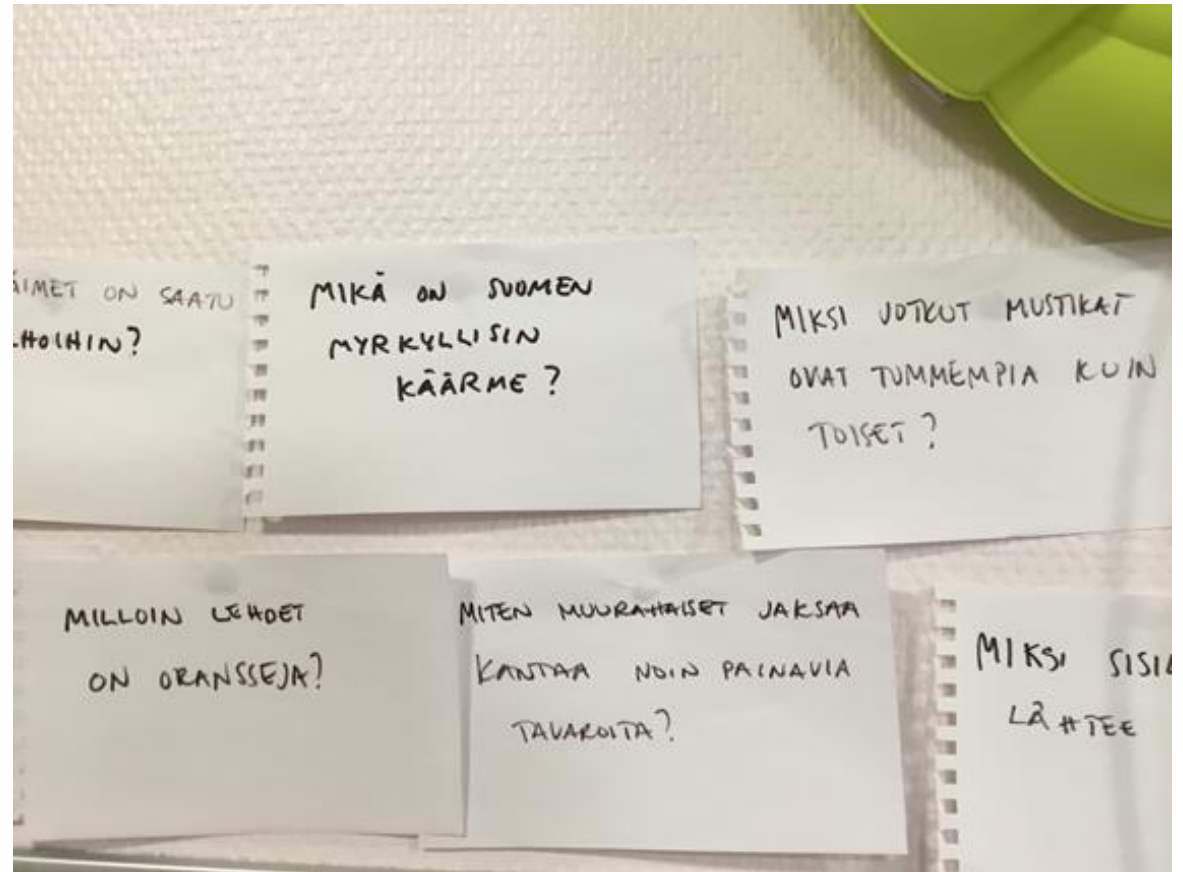 ÄIMET ON SAATU
HOIHIN?
MIKÄ ON SUOMEN
MYRKYLLISIN
KÄÄRME?
MIKSI JOTKUT MUSTIKAT
OVAT TUMMEMPIA KUIN
TOISET?
MILLOIN LEHDET
ON ORANSSEJA?
MITEN MUURAHAISET JAKSAA
KANTAA NOIN PAINAVIA
TAVAROITA?
MIKSI SISIL
LÄHTEE